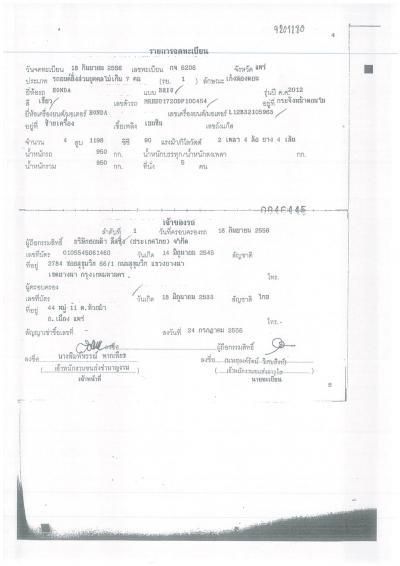 9201180
4
รายการจดทะเบียน
วันจดทะเบียน 18 กันยายน 2556 เลขทะเบียน กจ 6206 จังหวัด แพร่
ประเภท รถยนต์นั่งส่วนบุคคลไม่เกิน 7 คน (รย. 1 ) ลักษณะ เก๋งสองตอน
ยี่ห้อรถ HONDA แบบ รุ่นปี ค.ศ. 2012
สี เขียว เลขตัวรถ อยู่ที่
ยี่ห้อเครื่องยนต์/มอเตอร์ HONDA เลขเครื่องยนต์/มอเตอร์ L12B32105963
อยู่ที่ ซ้ายเครื่อง เชื้อเพลิง เบนซิน เลขถังแก๊ส
จำนวน 4 สูบ 1198 ซีซี 90 แรงม้า/กิโลวัตต์ 2 เพลา 4 ล้อ ยาง 4 เส้น
น้ำหนักรถ 950 กก. น้ำหนักบรรทุก/น้ำหนักลงเพลา กก.
น้ำหนักรวม 950 กก. ที่นั่ง 5 คน
เจ้าของรถ
ลำดับที่ 1 วันที่ครอบครองรถ 18 กันยายน 2556
ผู้ถือกรรมสิทธิ์ บริษัทฮอนด้า ลีสซิ่ง (ประเทศไทย) จำกัด
เลขที่บัตร 0105545061460 วันเกิด 14 มิถุนายน 2545 สัญชาติ
ที่อยู่ 2784 ซอยสุขุมวิท 66/1 ถนนสุขุมวิท แขวงบางนา
เขตบางนา กรุงเทพมหานคร . โทร.
ผู้ครอบครอง
เลขที่บัตร วันเกิด 18 มิถุนายน 2533 สัญชาติ ไทย
ที่อยู่ 44 หมู่ 11 ต.ห้วยม้า
อ.เมือง แพร่ โทร.-
สัญญาเช่าซื้อเลขที่ - ลงวันที่ 24 กรกฎาคม 2556
ผู้ถือกรรมสิทธิ์
ลงชื่อ ลงชื่อ
เจ้าหน้าที่ นายทะเบียน
5